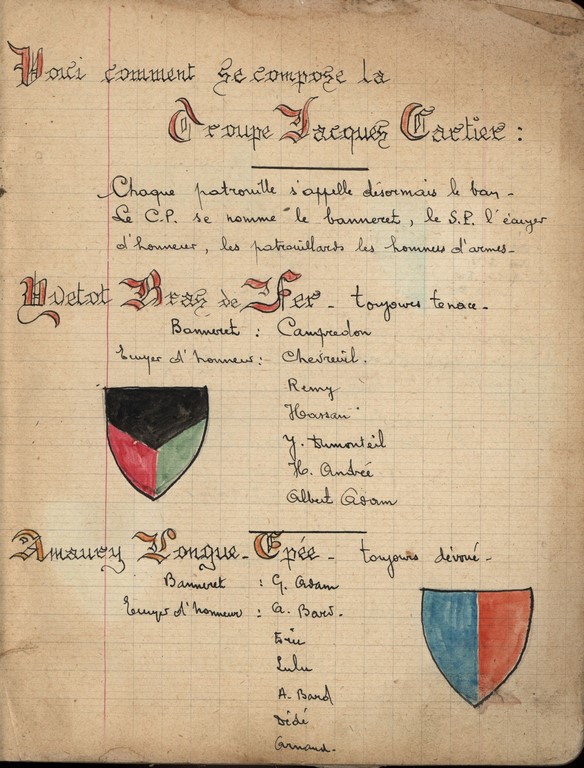 Voici comment se compose la
Troupe Jacques Cartier :
Chaque patrouille s'appelle désormais le ban -
Le C.P. se nomme le banneret, le S.P. l'écuyer
d'honneur, les patrouillards les hommes d'armes -
Yvetot Bras de Fer - toujours tenace -
Banneret : Campredon
Ecuyer d'honneur : Chevreuil.
Remy
Hassan
Y. Dumonteil
H. André
Albert Adam
Amaury Longue-Epée - toujours dévoué -
Banneret : G. Adam
Ecuyer d'honneur : A. Bard -
Eric
Lulu
A. Bard
Dédé
Arnaud.